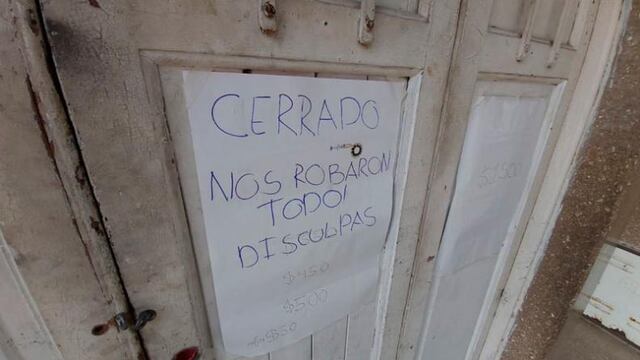 CERRADO
NOS ROBARON
TODO!
DISCULPAS
$450
$500